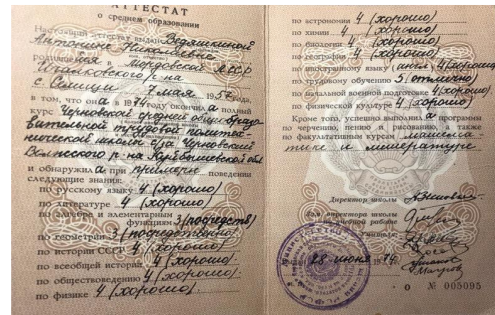 АТТЕСТАТ
о среднем образовании
Настоящий аттестат выдан Ведяшкиной
Антонине Николаевне
родившейся в Мордовской АССР
р-на
с. Селищи 7 мая 1957 г.
в том, что она в 1974 году окончила полный
курс Черновской средней общеобразо
вительной трудовой политех
нической школы с/за Черновский
Волжского р-на Куйбышевской обл
и обнаружила при примерном поведении
следующие знания:
по русскому языку 4 (хорошо)
по литературе 4 (хорошо)
по алгебре и элементарным
функциям 3 (посредств)
по геометрии 3 (посредственно)
по истории СССР 4 (хорошо)
по всеобщей истории 4 (хорошо)
по обществоведению 4 (хорошо)
по физике 4 (хорошо)
по астрономии 4 (хорошо)
по химии 4 (хорошо)
по биологии 4 (хорошо)
по географии 4 (хорошо)
по иностранному языку (англ) 4 (хорошо)
по трудовому обучению 5 (отлично)
по начальной военной подготовке 4 (хорошо)
по физической культуре 4 (хорошо)
Кроме того, успешно выполнила программы
по черчению, пению и рисованию, а также
по факультативным курсам математике
и литературе
Директор школы
Зам. директора школы
по учебной работе
Учителя:
28 июня 1974 г.
О № 005095